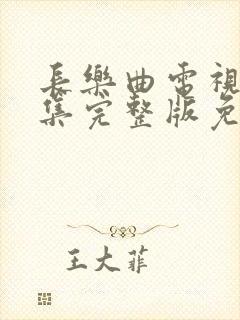 長樂曲電視
集完整版免
王大菲